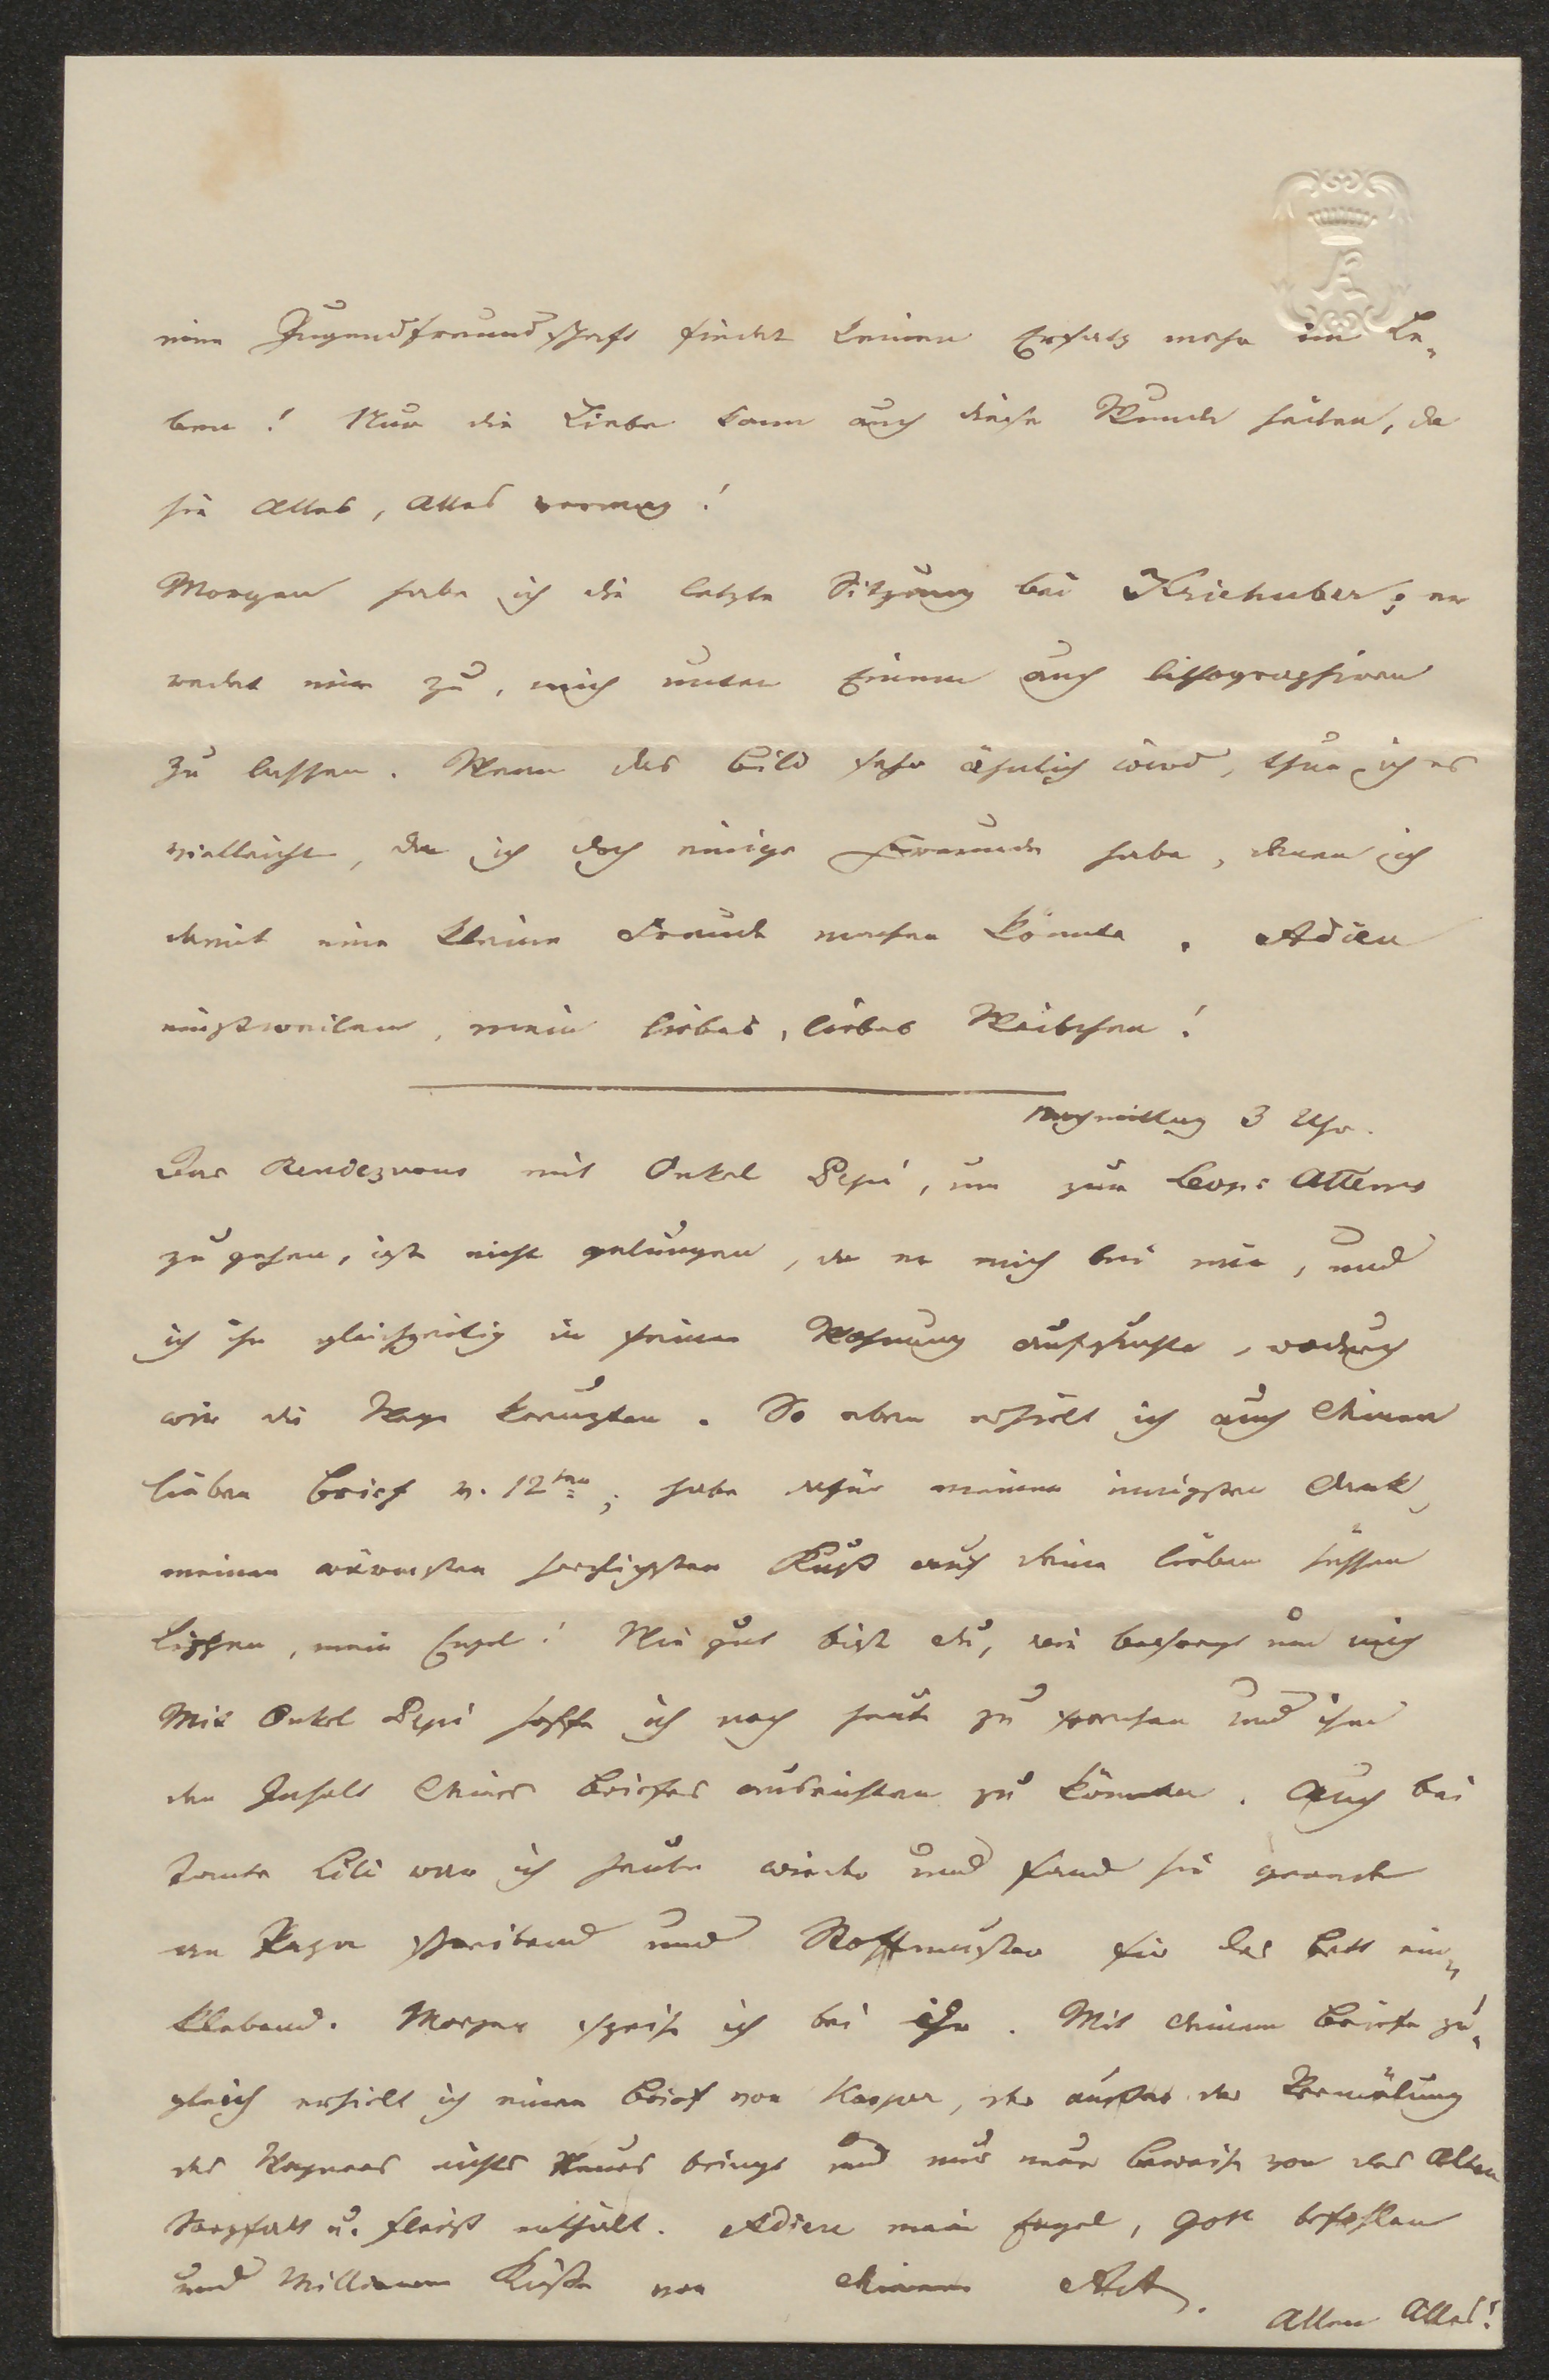 eine Jugendfreundschaft findet keinen Ersatz mehr im Le-
ben! Nur die Liebe kann auch diese Wunde heilen, da
sie Alles, Alles vermag!
Morgen habe ich die letzte Sitzung bei Kriehuber; er
redet mir zu, mich unter Einem auch lithographiren
zu lassen. Wenn das Bild sehr ähnlich wird, thue ich es
vielleicht, da ich doch einige Freunde habe, denen ich
damit eine kleine Freude machen könnte. Adieu
einstweilen, mein liebes, liebes Weibchen!
Nachmittag 3 Uhr.
Das Rendezvous mit Onkel Pepi, um zur Leop: Attems
zu gehen, ist nicht gelungen, da er mich bei mir, und
ich ihn gleichzeitig in seiner Wohnung aufsuchte, wodurch
wir die Wege kreuzten. So eben erhielt ich auch Deinen
lieben Brief v. 12ten; habe dafür meinen innigsten Dank,
meinen wärmsten herzlichsten Kuß auf deine lieben süssen
Lippen, mein Engel! Wie gut bist du, wie besorgt um mich
Mit Onkel Pepi hoffe ich noch heute zu sprechen und ihm
den Inhalt Deines Briefes ausrichten zu können. Auch bei
Tante Lili war ich heute wieder und fand sie gerade
an Papa schreibend und Stoffmuster für das Bett ein-
klebend. Morgen speise ich bei ihr. Mit deinem Briefe zu-
gleich erhielt ich einen Brief von Kasper, der außer der Vermälung
des Wagners nichts Neues bringt und nur neue Beweise von des Alten
Sorgfalt u. Fleiß enthält. Adieu mein Engel, Gott befohlen
und Millionen Küße von Deinem
Allen Alles!